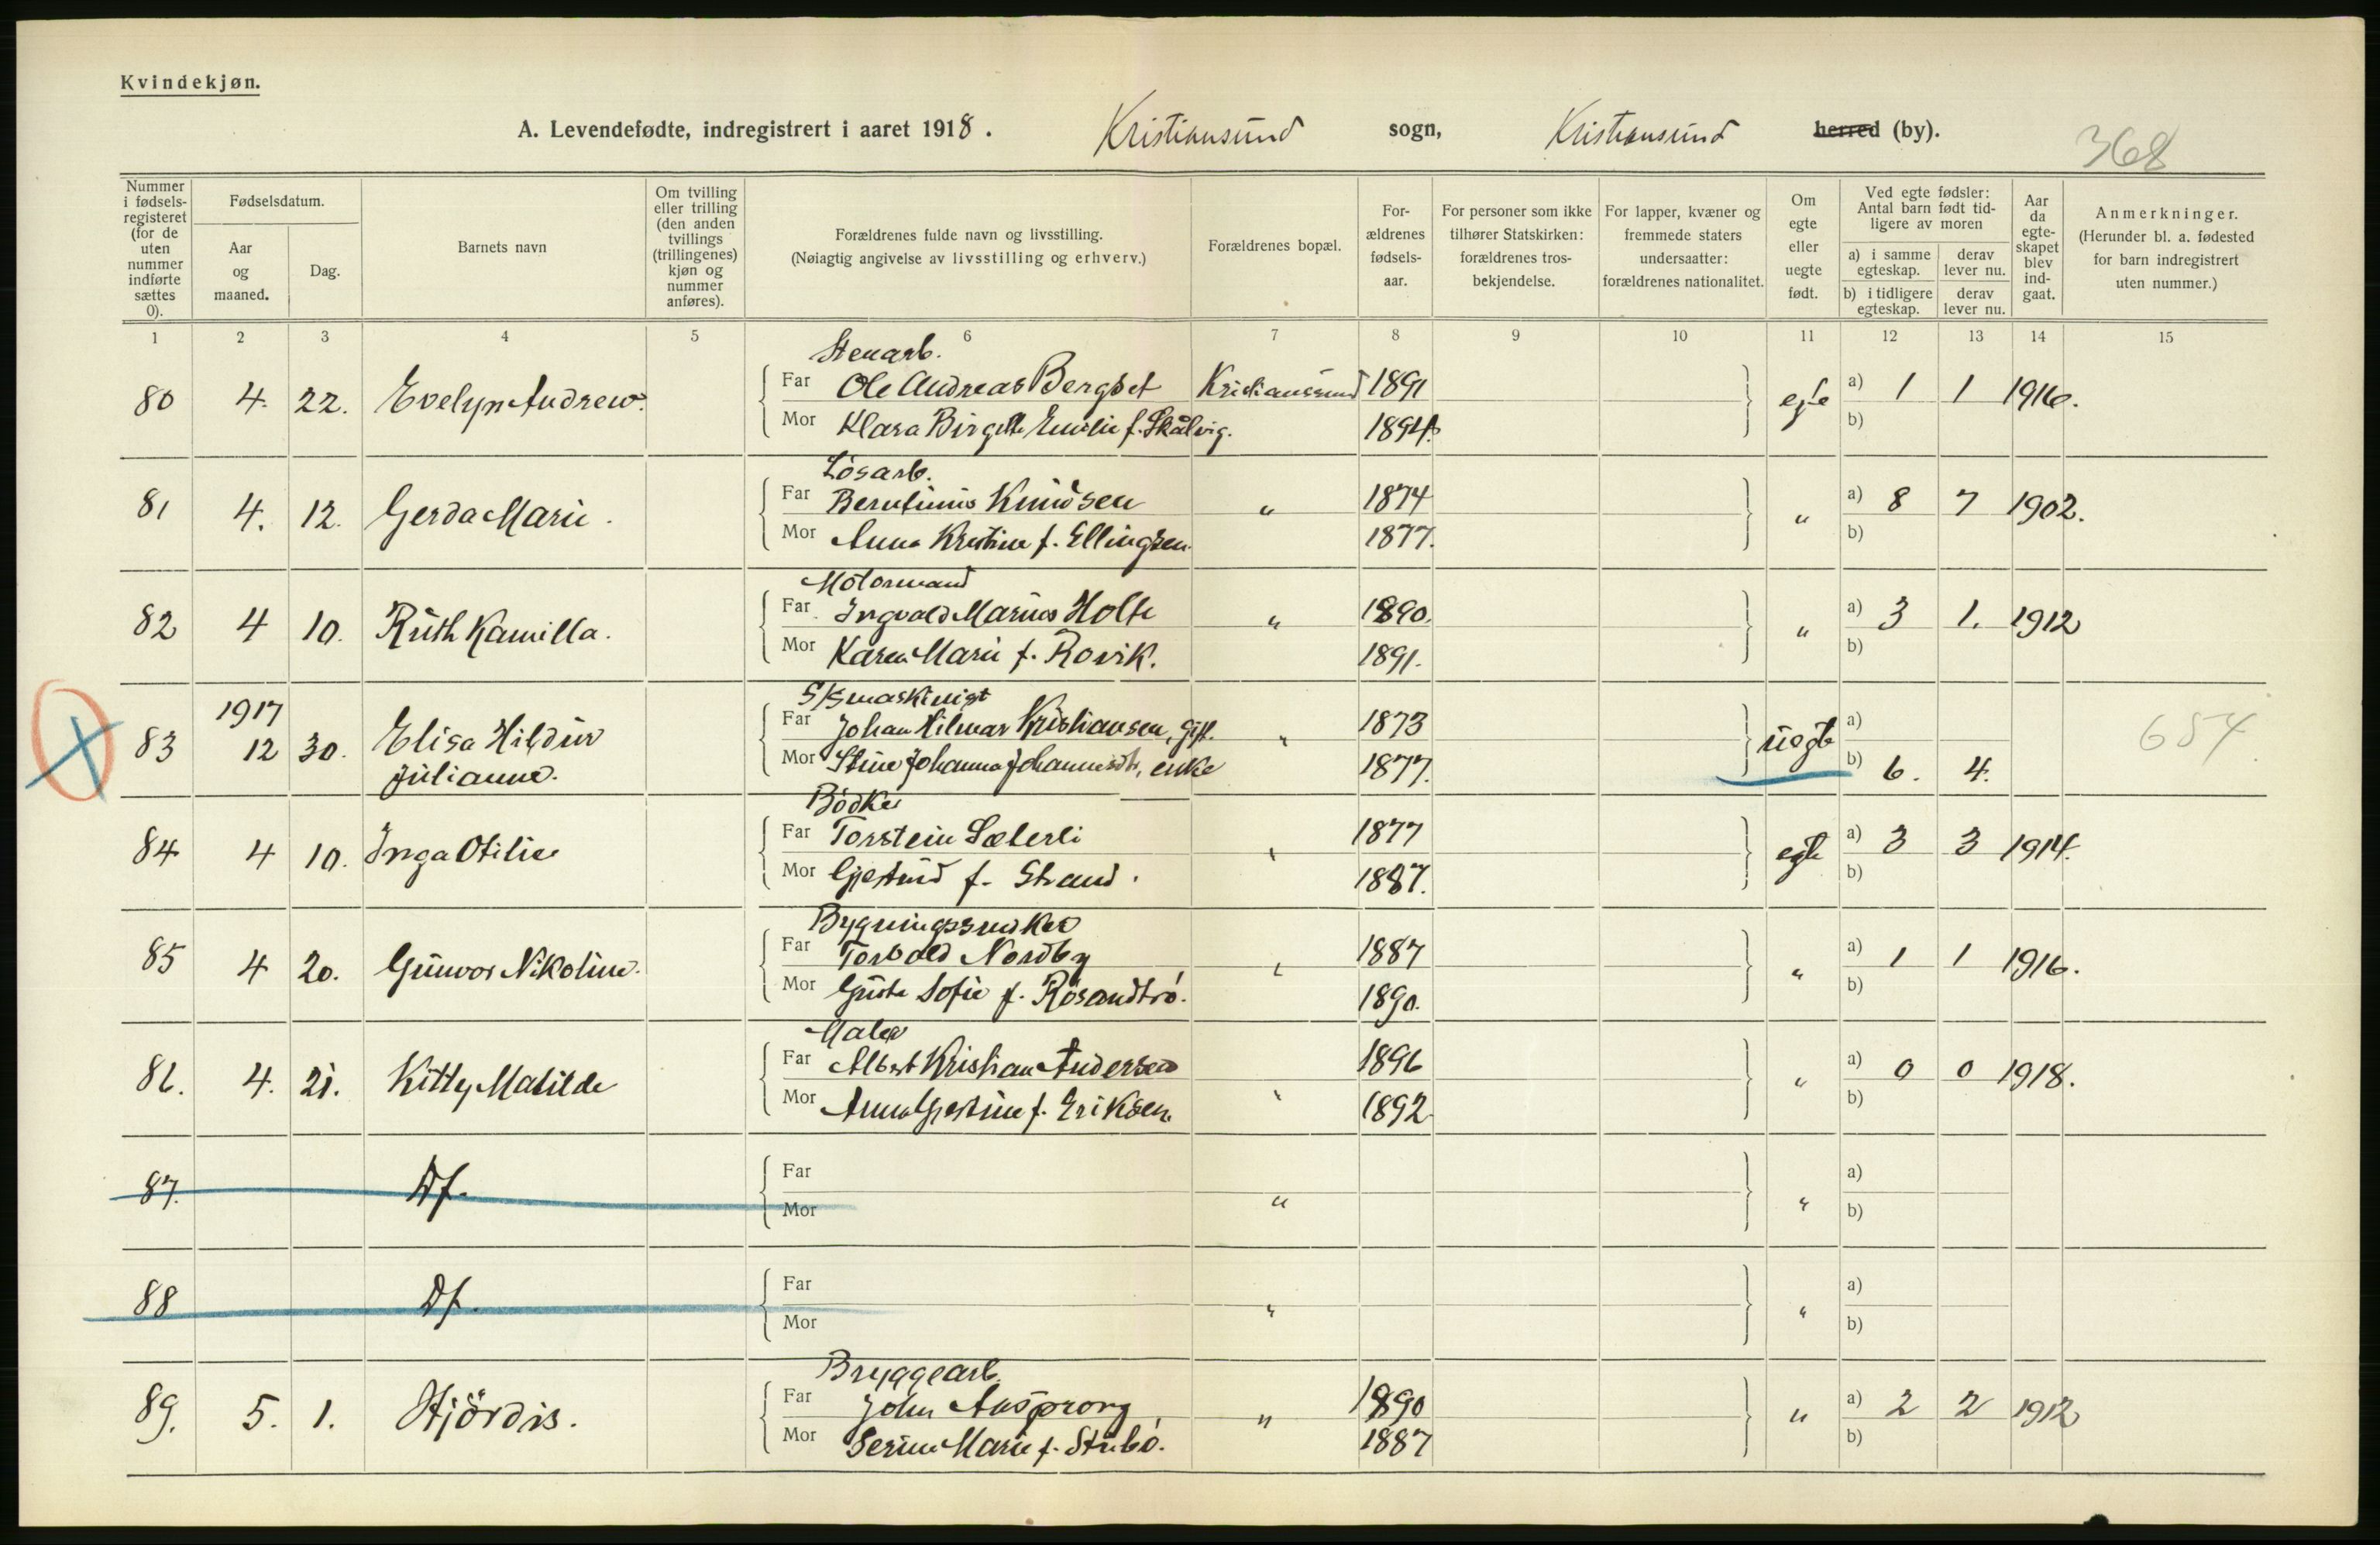 Kvindekjøn.
A. Levendefødte, indregistrert i aaret 1918. Kristiansund sogn, Kristiansund herred (by).
368
Nummer i fødselsregisteret (for de uten nummer indførte sættes 0).
Fødselsdatum.
Aar og maaned.
Dag.
Barnets navn
Om tvilling eller trilling (den anden tvillings (trillingenes) kjøn og nummer anføres).
Forældrenes fulde navn og livsstilling.
(Nøiagtig angivelse av livsstilling og erhverv.)
Forældrenes bopæl.
Forældrenes fødselsaar.
For personer som ikke tilhører Statskirken: forældrenes trosbekjendelse.
For lapper, kvæner og fremmede staters undersaatter: forældrenes nationalitet.
Om egte eller uegte født.
Ved egte fødsler: Antal barn født tidligere av moren
a) i samme egteskap.
derav lever nu.
b) i tidligere egteskap.
derav lever nu.
Aar da egteskapet blev indgaat.
Anmerkninger.
(Herunder bl. a. fødested for barn indregistrert uten nummer.)
1 2 3 4 5 6 7 8 9 10 11 12 13 14 15
Stenarb.
80 4. 22. Evelyn Andrew. Far Ole Andreas Bergset Kristiansund 1891 egte a) 1 1 1916.
Mor Klara Birgitte Emilie f. Skålvig. 1894. b)
Løsarb.
81 4. 12. Gerda Marie. Far Berntinius Knudsen " 1874 " a) 8 7 1902.
Mor Anna Kristine f. Ellingsen. 1877. b)
Motormand
82 4 10. Ruth Kamilla. Far Ingvald Marius Holte " 1890. " a) 3 1. 1912
Mor Karen Marie f. Rovik. 1891. b)
S/Smaskinist
83 1917 12 30. Elisa Hildur Julianne. Far Johan Hilmar Kristiansen, gift. " 1873 uegte a) 654
Mor Stine Johanna Johannesdtr, enke 1877. b) 6. 4.
Bødker
84 4 10. Inga Otilie Far Torstein Sæterli " 1877 egte a) 3 3 1914.
Mor Gjertrud f. Strand. 1887. b)
Bygningssndker
85 4 20. Gunvor Nikoline. Far Torvald Nordby " 1887 " a) 1 1 1916.
Mor Gusta Sofie f. Røsandtrø. 1890. b)
Maler
86. 4. 21. Kitty Matilde Far Albert Kristian Andersen " 1896 " a) 0 0 1918.
Mor Anna Gjertine f. Eriksen. 1892 b)
87. Df. Far " " a)
Mor b)
88 Df. Far " " a)
Mor b)
Bryggearb.
89. 5. 1. Hjördis. Far John Ansprong " 1890 " a) 2 2 1912
Mor Serine Marie f. Stubø. 1887 b)